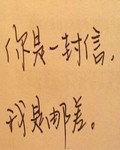 你是一封信,
我是邮差。